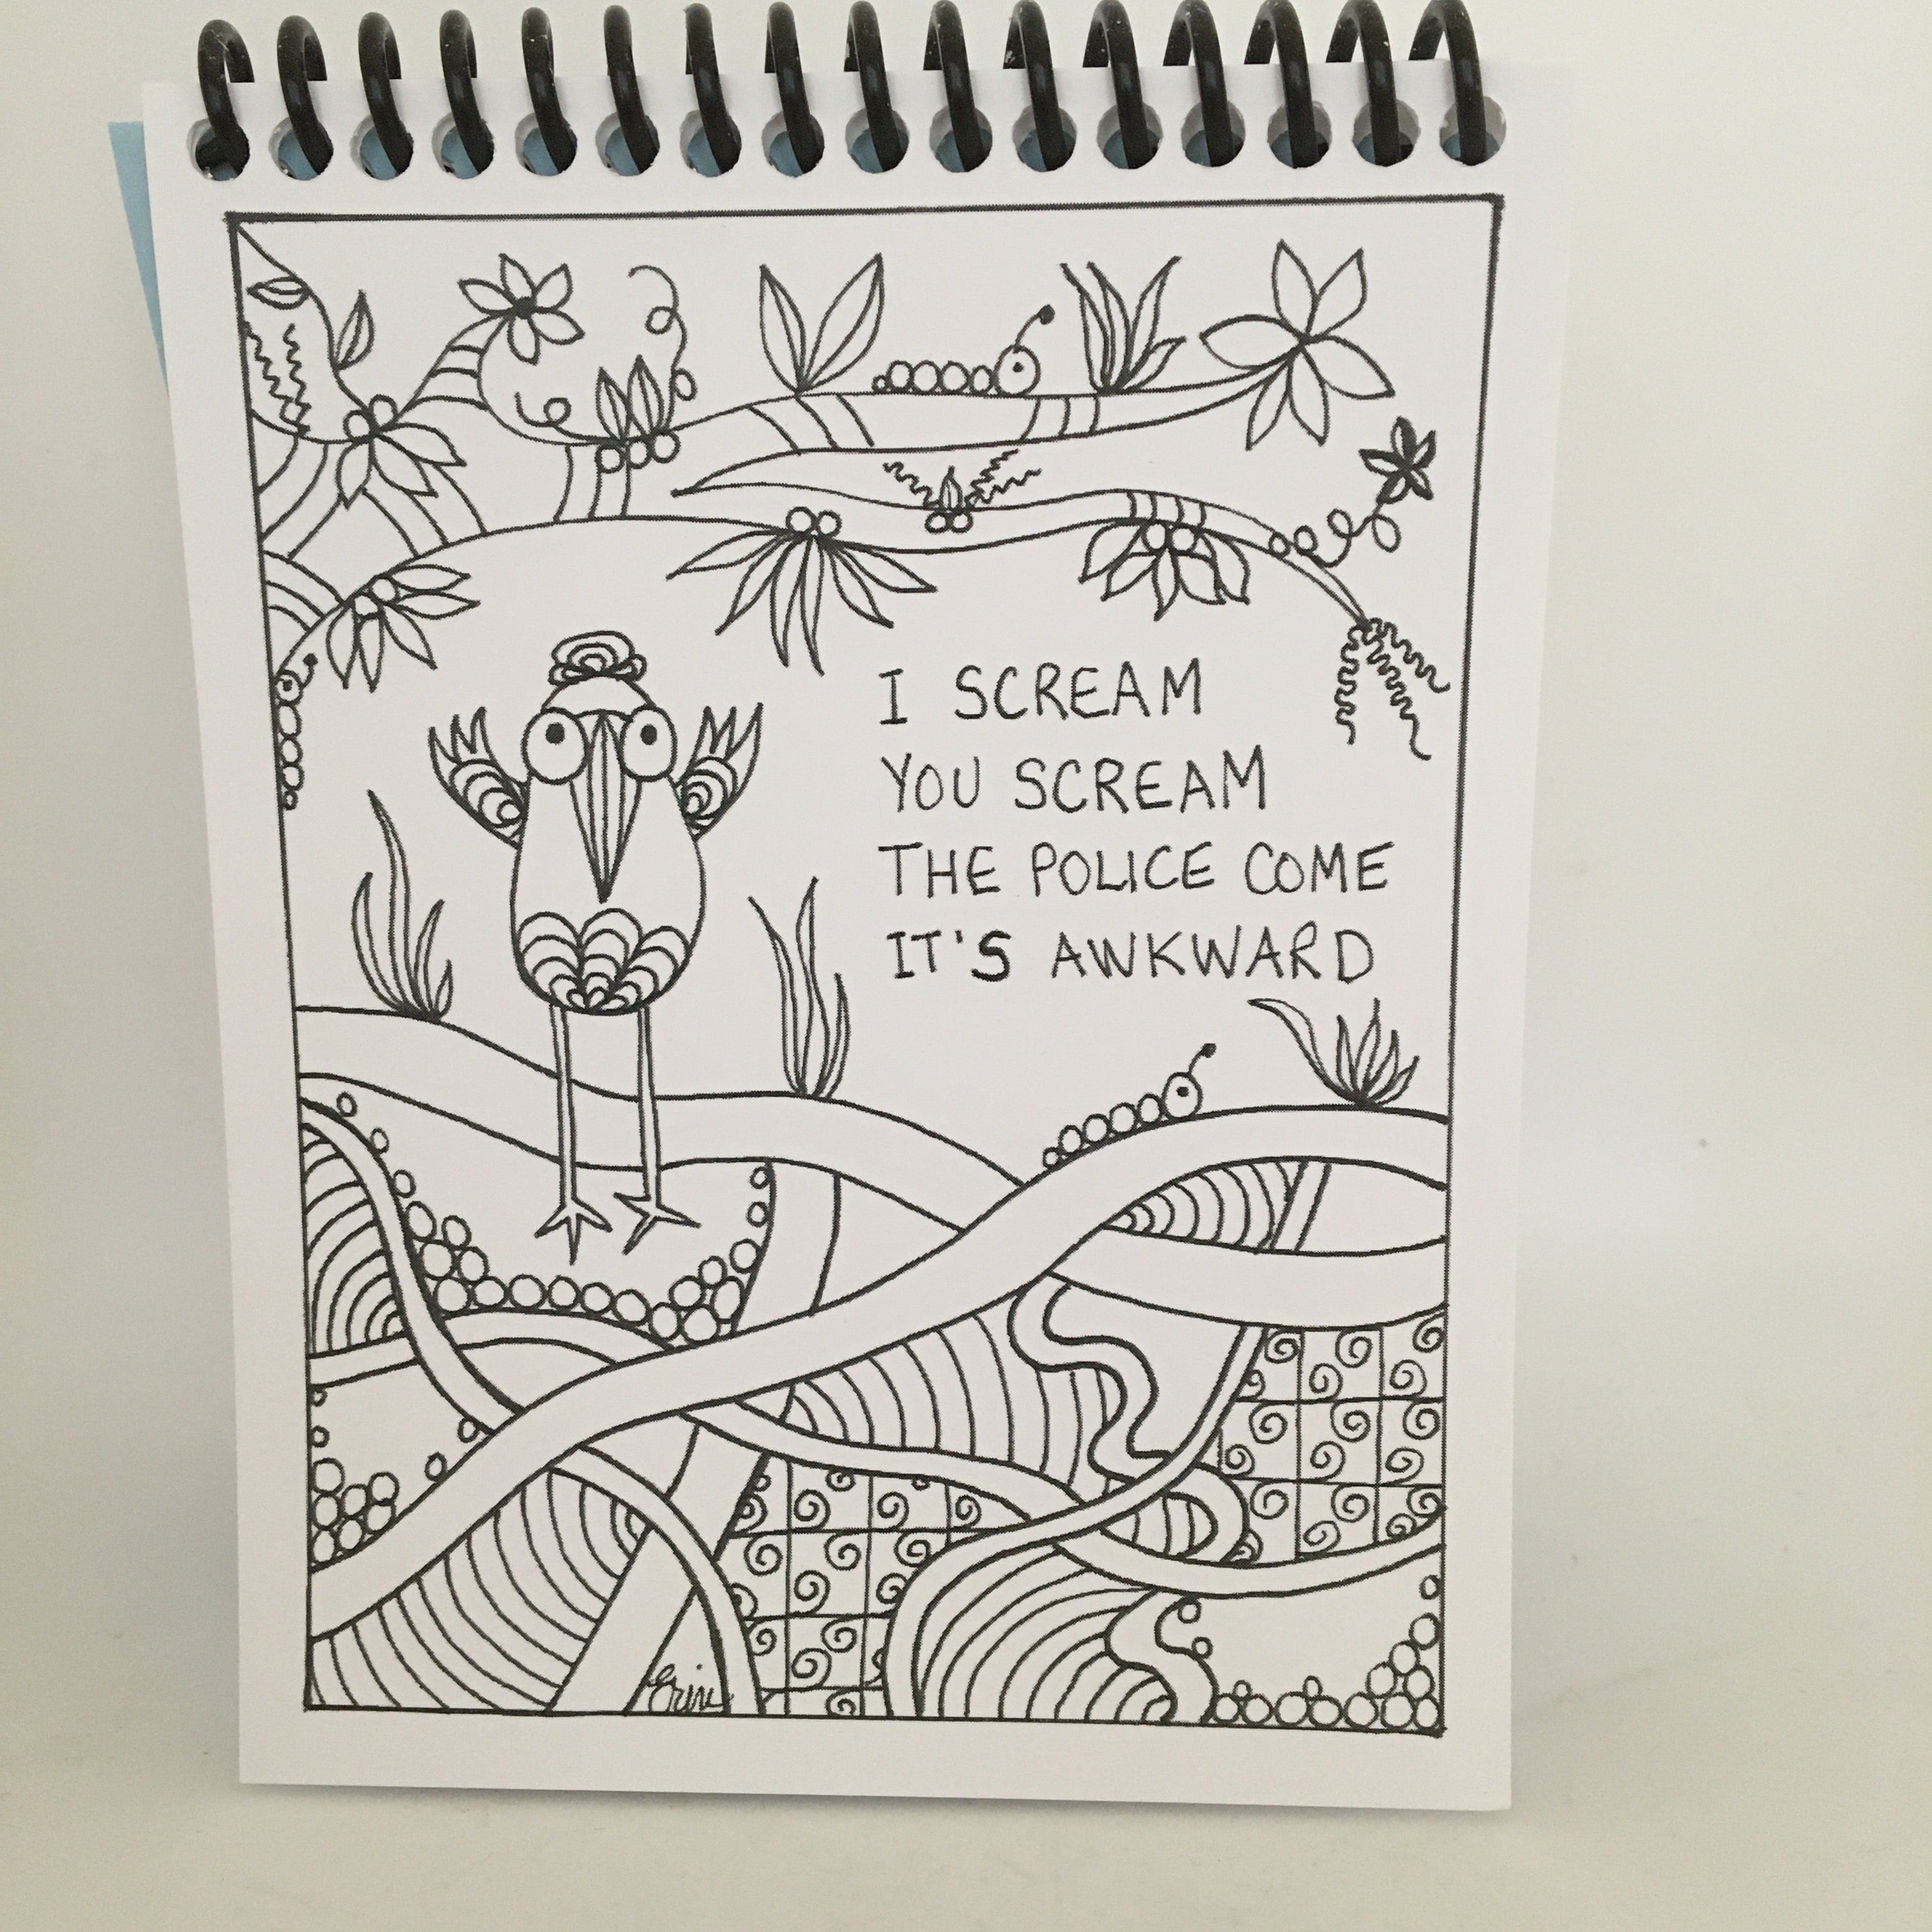 I SCREAM
YOU SCREAM
THE POLICE COME
IT'S AWKWARD
Erin